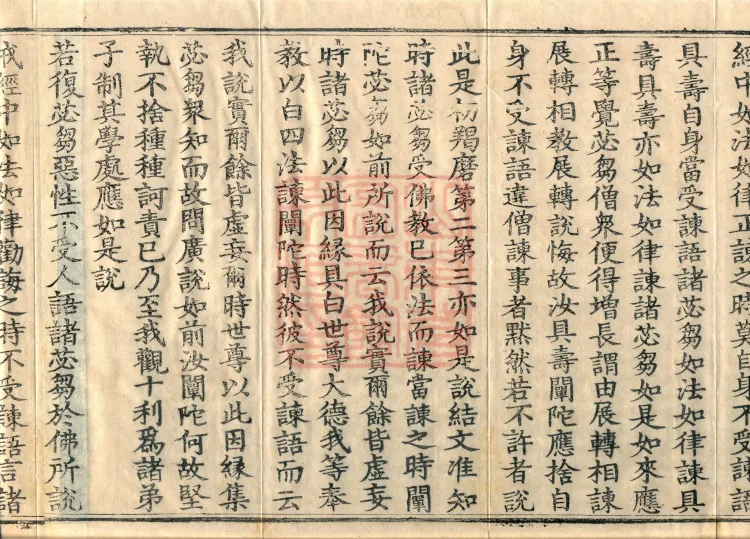 經中如法如律正諫之時莫自身不受諫語
具壽自身當受諫語諸苾芻如法如律諫具
壽具壽亦如法如律諫諸苾芻如是如來應
正等覺苾芻僧衆便得增長謂由展轉相諫
展轉相教展轉說悔故汝具壽闡陀應捨自
身不受諫語違僧諫事者默然若不許者說
此是初羯磨第二第三亦如是說結文准知
時諸苾芻受佛教已依法而諫當諫之時闡
陀苾芻如前所說而云我說實爾餘皆虛妄
時諸苾芻以此因緣具白世尊大德我等奉
教以白四法諫闡陀時然彼不受諫語而云
我說實爾餘皆虛妄爾時世尊以此因緣集
苾芻衆知而故問廣說如前汝闡陀何故堅
執不捨種種訶責已乃至我觀十利爲諸弟
子制其學處應如是說
若復苾芻惡性不受人語諸苾芻於佛所說
戒經中如法如律勸誨之時不受諫語言諸